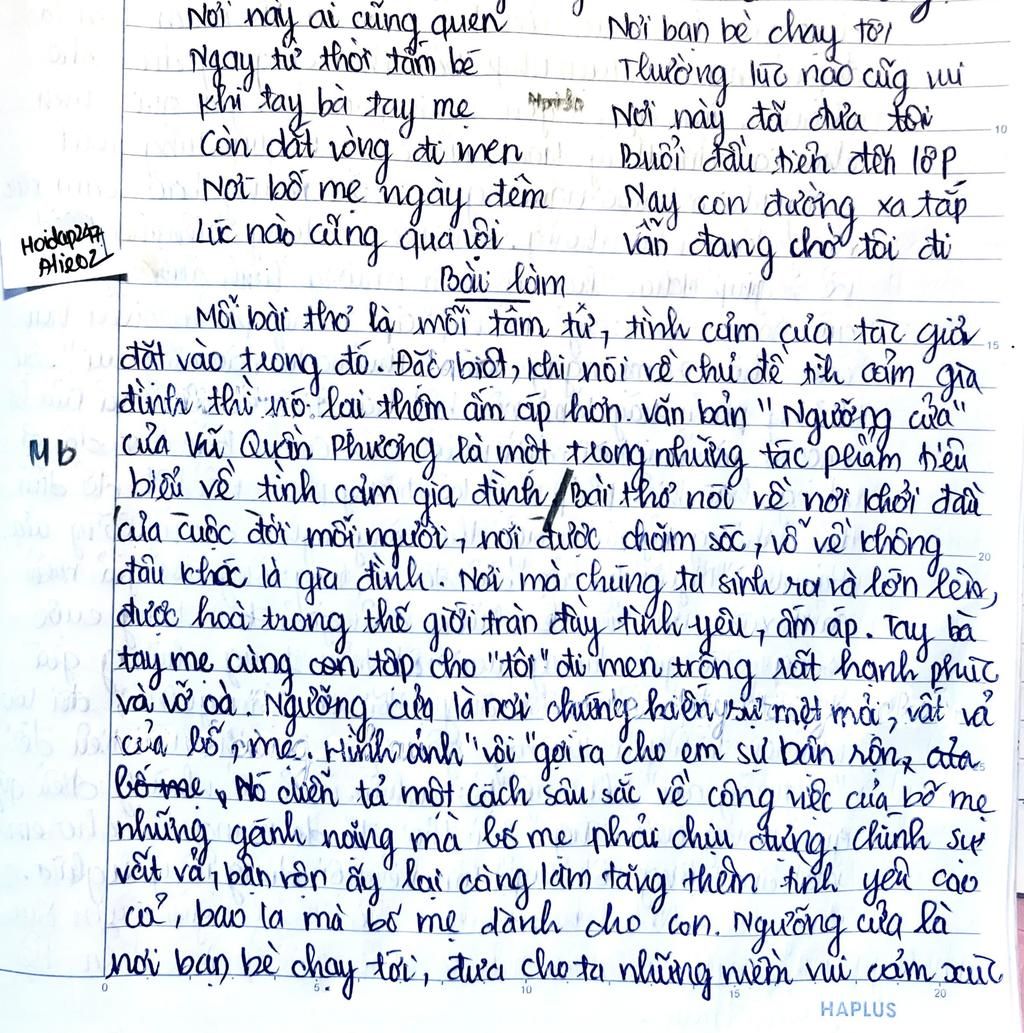 Nơi này ai cũng quen
Ngay từ thời tấm bé
Khi tay bà tay mẹ
Còn dắt vòng đi men
Nơi bố mẹ ngày đêm
Lúc nào cũng qua vội
Nơi bạn bè chạy tới
Thường lúc nào cũg vui
Nơi này đã đưa tôi
Buổi đầu tiên đến lớp
Nay con đường xa tắp
Vẫn đang chờ tôi đi
Hoidap247
Alie02
Bài làm
Mỗi bài thơ là mỗi tâm tư, tình cảm của tác giả
đặt vào trong đó. Đặc biệt, khi nói về chủ đề tìh cảm gia
đình thì nó lại thêm ấm áp hơn văn bản "Ngưỡng cửa"
Mb
của Vũ Quần Phương là một trong những tác phẩm tiêu
biểu về tình cảm gia đình / Bài thơ nói về nơi khởi đầu
của cuộc đời mỗi người, nơi được chăm sóc, vỗ về không
đâu khác là gia đình. Nơi mà chúng ta sinh ra và lớn lên,
được hoà trong thế giới tràn đầy tình yêu, ấm áp. Tay bà
tay mẹ cùng con tập cho "tôi" đi men trông rất hạnh phúc
và vỡ oà. Ngưỡng cửa là nơi chứng kiến sự mệt mỏi, vất vả
của bố, mẹ. Hình ảnh "vội" gợi ra cho em sự bận rộn, của
bố mẹ, Nó diễn tả một cách sâu sắc về công việc của bố mẹ
những gánh nặng mà bố mẹ phải chịu đựng, chính sự
vất vả, bận rộn ấy lại càng làm tăng thêm tình yêu cao
cả, bao la mà bố mẹ dành cho con. Ngưỡng cửa là
nơi bạn bè chạy tới, đưa cho ta những niềm vui cảm xúc
10
15
20
25
0
5
10
15
20
HAPLUS